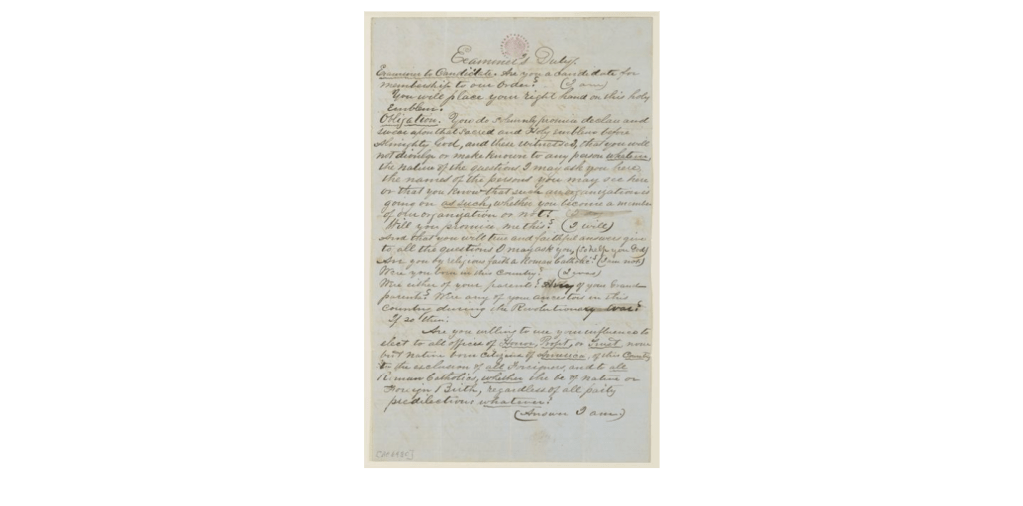 Examiner's Duty.
Examiner to Candidate. Are you a candidate for
membership to our Order? (I am)
You will place your right hand on this holy
Emblem.
Obligation. You do solemnly promise declare and
swear upon that sacred and Holy emblem before
Almighty God, and these witnesses, that you will
not divulge or make known to any person whatever,
the nature of the questions I may ask you here,
the names of the persons you may see here
or that you know that such an organization is
going on as such, whether you become a member
of our organization or not?
Will you promise me this? (I will)
And that you will true and faithful answers give
to all the questions I may ask you, (So help you God)
Are you by religious faith a Roman Catholic? (I am not)
Were you born in this Country? (I was)
Were either of your parents? Any of your Grand
parents? Were any of your ancestors in this
country during the Revolutionary War?
If so then:
Are you willing to use your influence to
elect to all offices of Honor, Profit, or Trust none
but native born citizens of America, of this Country
to the exclusion of all Foreigners, and to all
Roman Catholics, whether they be of native or
Foreign Birth, regardless of all party
predilections whatever?
(Answer I am)